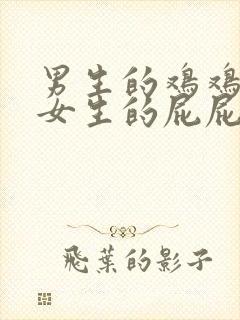 男生的鸡鸡
女生的屁屁
飛葉的影子